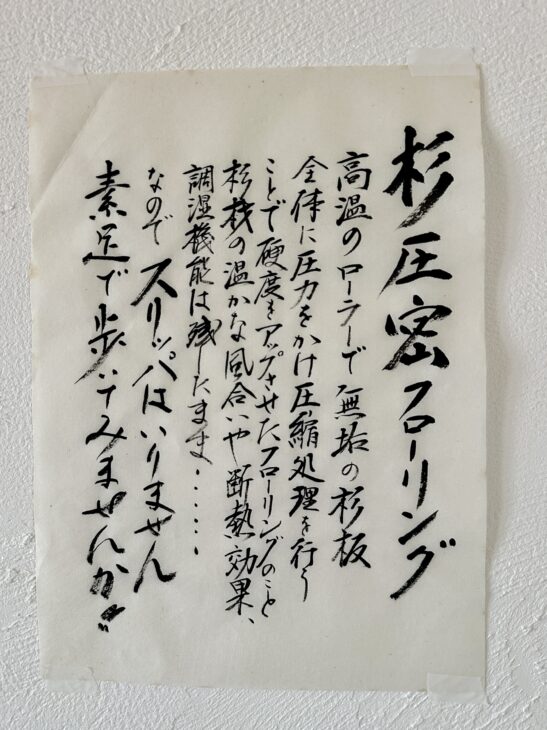 杉圧密フローリング
高温のローラーで無垢の杉板
全体に圧力をかけ圧縮処理を行う
ことで硬度をアップさせたフローリングのこと
杉板の温かな風合いや断熱効果、
調湿機能は残したまま・・・・・・
なのでスリッパはいりません
素足で歩いてみませんか!!